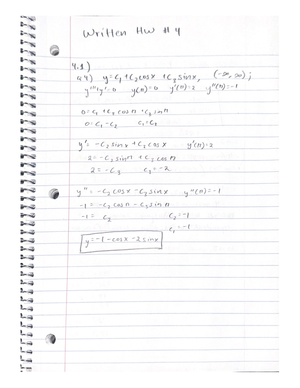 Written HW #4
4.1)
#4) y = c₁ + c₂cosx + c₃sinx, (-∞, ∞);
y'''+y'=0 y(π)=0 y'(π)=2 y''(π)=-1
0 = c₁ + c₂ cosπ + c₃ sinπ
0 = c₁ - c₂ c₁ = c₂
y' = -c₂ sinx + c₃ cosx y'(π)=2
2 = -c₂ sinπ + c₃ cosπ
2 = -c₃ c₃ = -2
y'' = -c₂ cosx - c₃ sinx y''(π) = -1
-1 = -c₂ cosπ - c₃ sinπ
-1 = c₂ c₂ = -1
c₁ = -1
y = -1 - cosx - 2 sinx